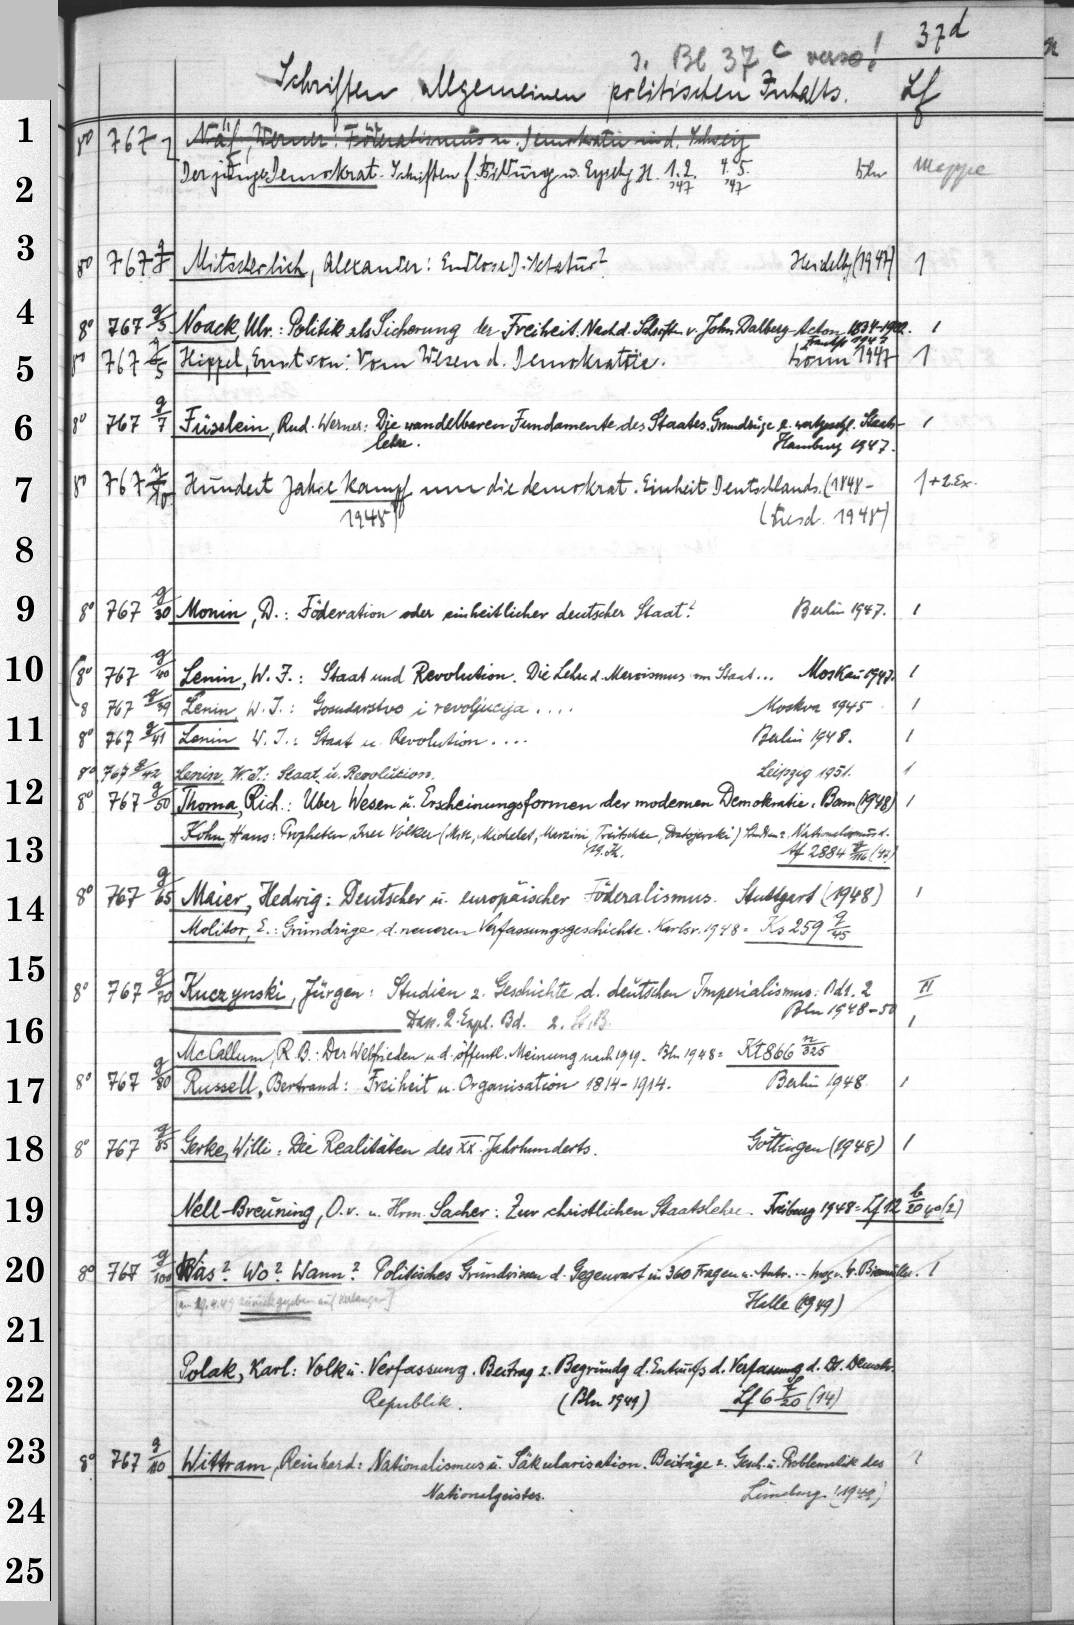 37d
s. Bl 37 c verso!
Schriften allgemeinen politischen Inhalts. Lf
1
8° 767 Näf, Werner: Föderalismus u. Demokratie in d. Schweiz
Der junge Demokrat. Schriften f. Bildung u. H. 1.2. 4.5. Bln Mappe
'47 '47
2
3
8° 767 g/ Mitscherlich, Alexander: Endlose Diktatur? Heidelbg (1947) 1
4
8° 767 g/3 Noack, Ulr.: Politik als Sicherung der Freiheit. Nach d. Schriften v. John Dalberg-Acton 1834-1902. 1
5
8° 767 g/5 Hippel, Ernst von: Vom Wesen d. Demokratie. Bonn 1947 1
6
8° 767 g/7 Füsslein, Rud. Werner: Die wandelbaren Fundamente des Staates. Grundzüge e. Staats- 1
lehre. Hamburg 1947.
7
8° 767 g/10 Hundert Jahre Kampf um die demokrat. Einheit Deutschlands. (1848- 1+2.Ex.
1948) (Dresd. 1948)
8
9
8° 767 g/30 Monin, D.: Föderation oder einheitlicher deutscher Staat? Berlin 1947. 1
10
8° 767 g/40 Lenin, W. I.: Staat und Revolution. Die Lehre d. Marxismus vom Staat... Moskau 1947. 1
8 767 g/39 Lenin, W. I.: Gosudarstvo i revoljucija .... Moskva 1945 1
11
8° 767 g/41 Lenin W. I.: Staat u. Revolution .... Berlin 1948. 1
8° 767 g/42 Lenin, W. I.: Staat u. Revolution. Leipzig 1951. 1
12
8° 767 g/50 Thoma, Rich.: Über Wesen u. Erscheinungsformen der modernen Demokratie. Bonn (1948) 1
Kohn, Hans: Propheten ihrer Völker (Mill, Michelet, Mazzini, Treitschke, Dostojewski) Studien z. Nationalismus d.
13
19. Jh. Af 2884 (48)
8° 767 g/65 Maier, Hedwig: Deutscher u. europäischer Föderalismus. Stuttgart (1948) 1
14
Molitor, E.: Grundzüge d. neueren Verfassungsgeschichte. Karlsr. 1948 = Ks 259 g/45
15
8° 767 g/70 Kuczynski, Jürgen: Studien z. Geschichte d. deutschen Imperialismus: Bd 1. 2 II
Bln 1948-50
16
Dass. 2. Expl. Bd. 2. St.B. 1
McCallum, R. B.: Der Weltfrieden u. d. öffentl. Meinung nach 1919. Bln 1948 = Kt 866 n/325
17
8° 767 g/80 Russell, Bertrand: Freiheit u. Organisation 1814-1914. Berlin 1948 1
18
8° 767 g/85 Gerke, Willi: Die Realitäten des XX. Jahrhunderts. Göttingen (1948) 1
19
Nell-Breuning, O. v. u. Hrm. Sacher: Zur christlichen Staatslehre. Freiburg 1948 = Lf 12 b/20 40(2)
20
8° 767 g/100 Was? Wo? Wann? Politisches Grundwissen d. Gegenwart in 360 Fragen u. Antw. ... 1
[am 19.4.49 zurückgegeben auf Verlangen] Halle (1949)
21
Polak, Karl: Volk u. Verfassung. Beitrag z. Begründg d. Entwurfs d. Verfassung d. Dt. Demokr.
22
Republik. (Bln 1949) Lf 6 /20 (14)
23
8° 767 g/110 Wittram, Reinhard: Nationalismus u. Säkularisation. Beiträge z. Gesch. u. Problematik des 1
Nationalgeistes. Lüneburg (1949)
24
25